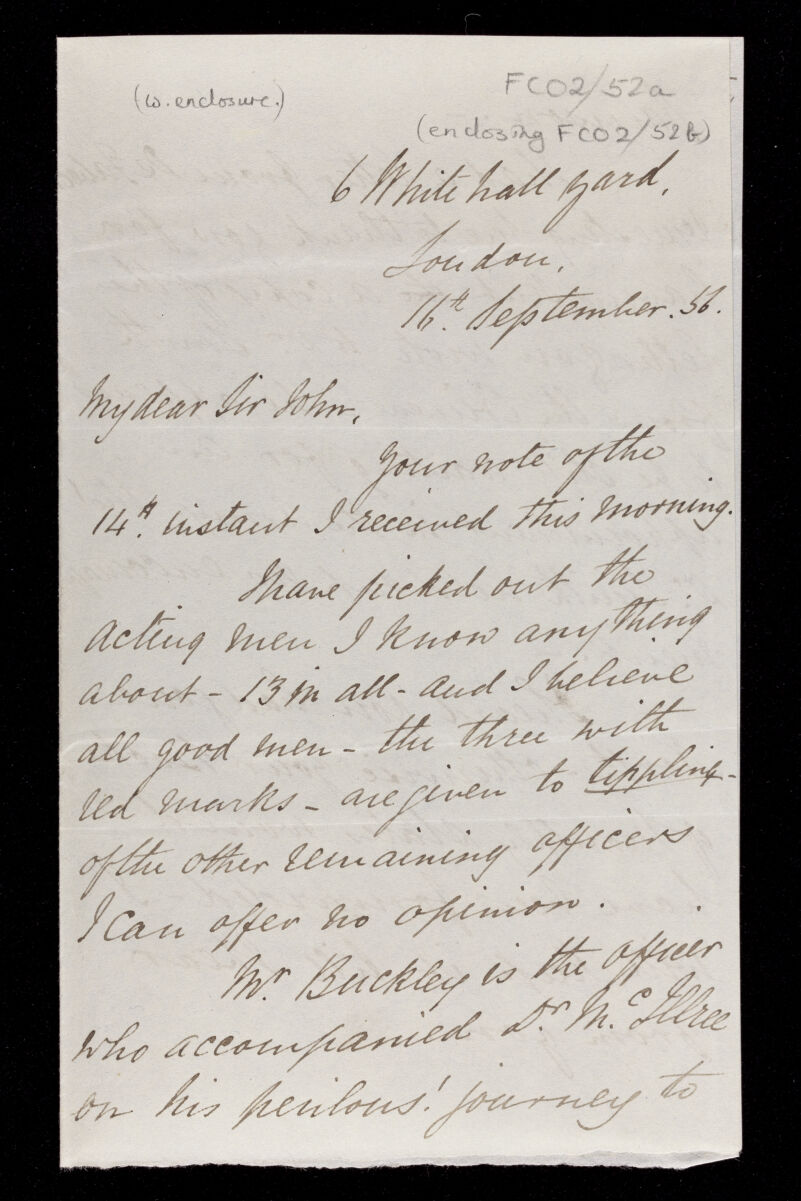 (w. enclosure.)
FCO2/52a
(enclosing FCO2/52b)
6 Whitehall Yard,
London,
16th. September. 56.
My dear Sir John,
Your note of the
14th. instant I received this morning.
I have picked out the
acting men I know anything
about - 13 in all - and I believe
all good men - the three with
red marks - are given to tippling -
of the other remaining officers
I can offer no opinion.
Mr. Buckley is the officer
who accompanied Dr. McIllree
on his perilous! journey to